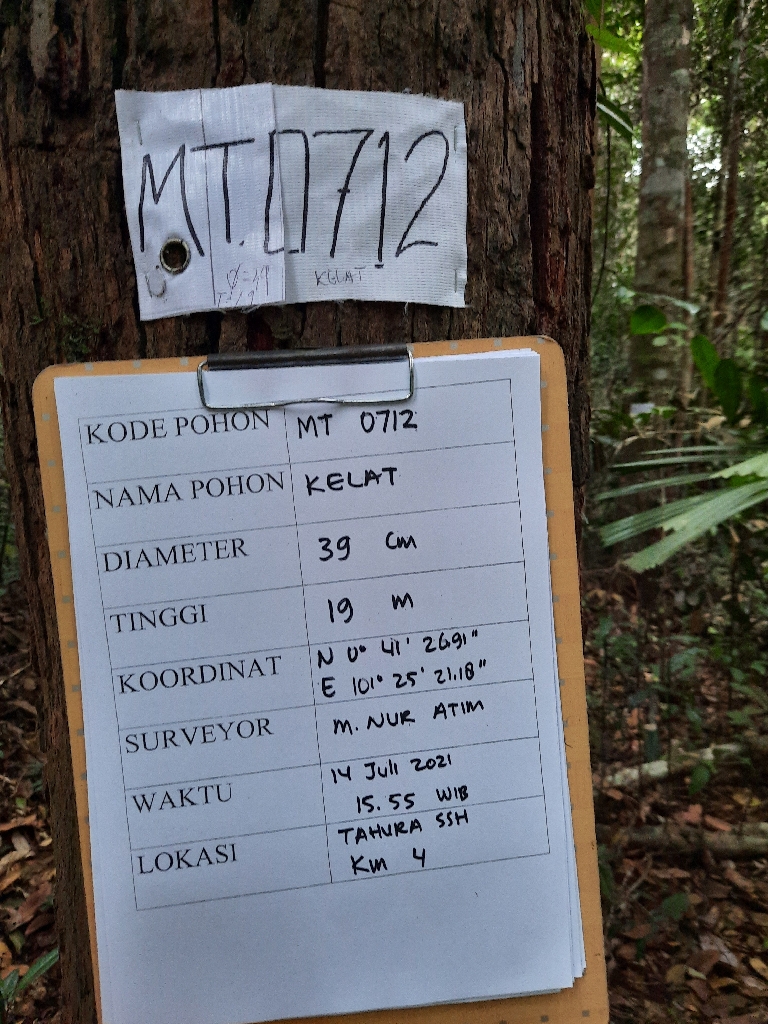 MT.0712
KELAT
KODE POHON MT 0712
NAMA POHON KELAT
DIAMETER 39 Cm
TINGGI 19 m
KOORDINAT N 0° 41' 26.91"
E 101° 25' 21.18"
SURVEYOR M. NUR ATIM
WAKTU 14 Juli 2021
15.55 WIB
LOKASI TAHURA SSH
Km 4